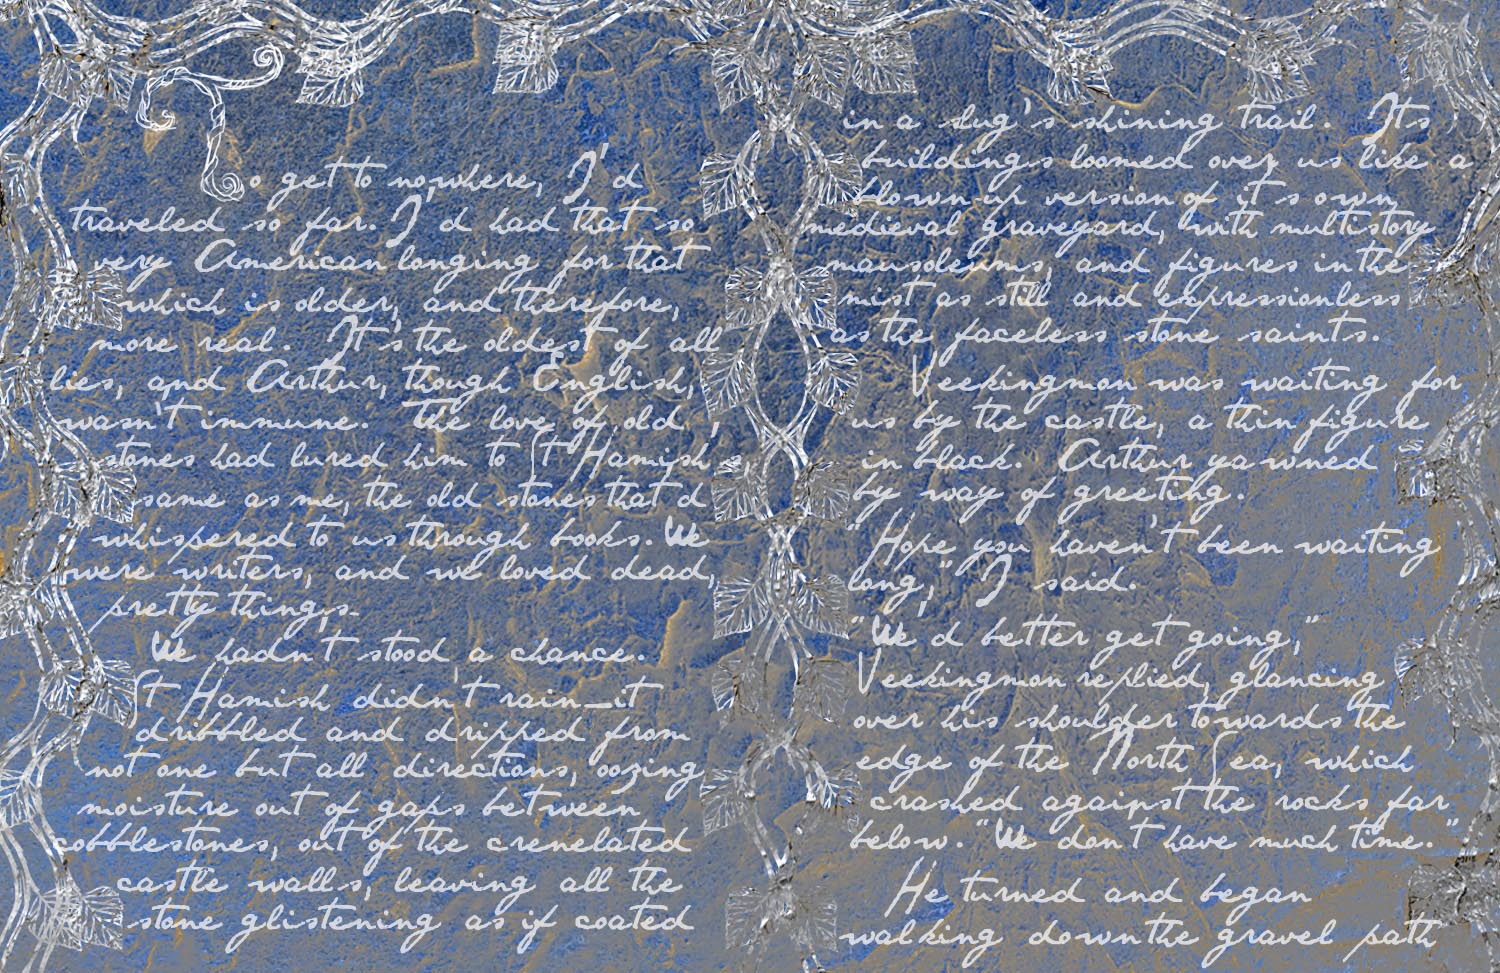 To get to nowhere, I'd
traveled so far. I'd had that so
very American longing for that
which is older, and therefore,
more real. It's the oldest of all
lies, and Arthur, though English,
wasn't immune. The love of old
stones had lured him to St Hamish's,
same as me, the old stones that'd
whispered to us through books. We
were writers, and we loved dead,
pretty things.
We hadn't stood a chance.
St Hamish didn't rain—it
dribbled and dripped from
not one but all directions, oozing
moisture out of gaps between
cobblestones, out of the crenelated
castle walls, leaving all the
stone glistening as if coated
in a slug's shining trail. Its
buildings loomed over us like a
blown up version of it's own
medieval graveyard, with multistory
mausoleums, and figures in the
mist as still and expressionless
as the faceless stone saints.
Veekingmon was waiting for
us by the castle, a thin figure
in black. Arthur yawned
by way of greeting.
"Hope you haven't been waiting
long," I said.
"We'd better get going,"
Veekingmon replied, glancing
over his shoulder towards the
edge of the North Sea, which
crashed against the rocks far
below. "We don't have much time."
He turned and began
walking down the gravel path